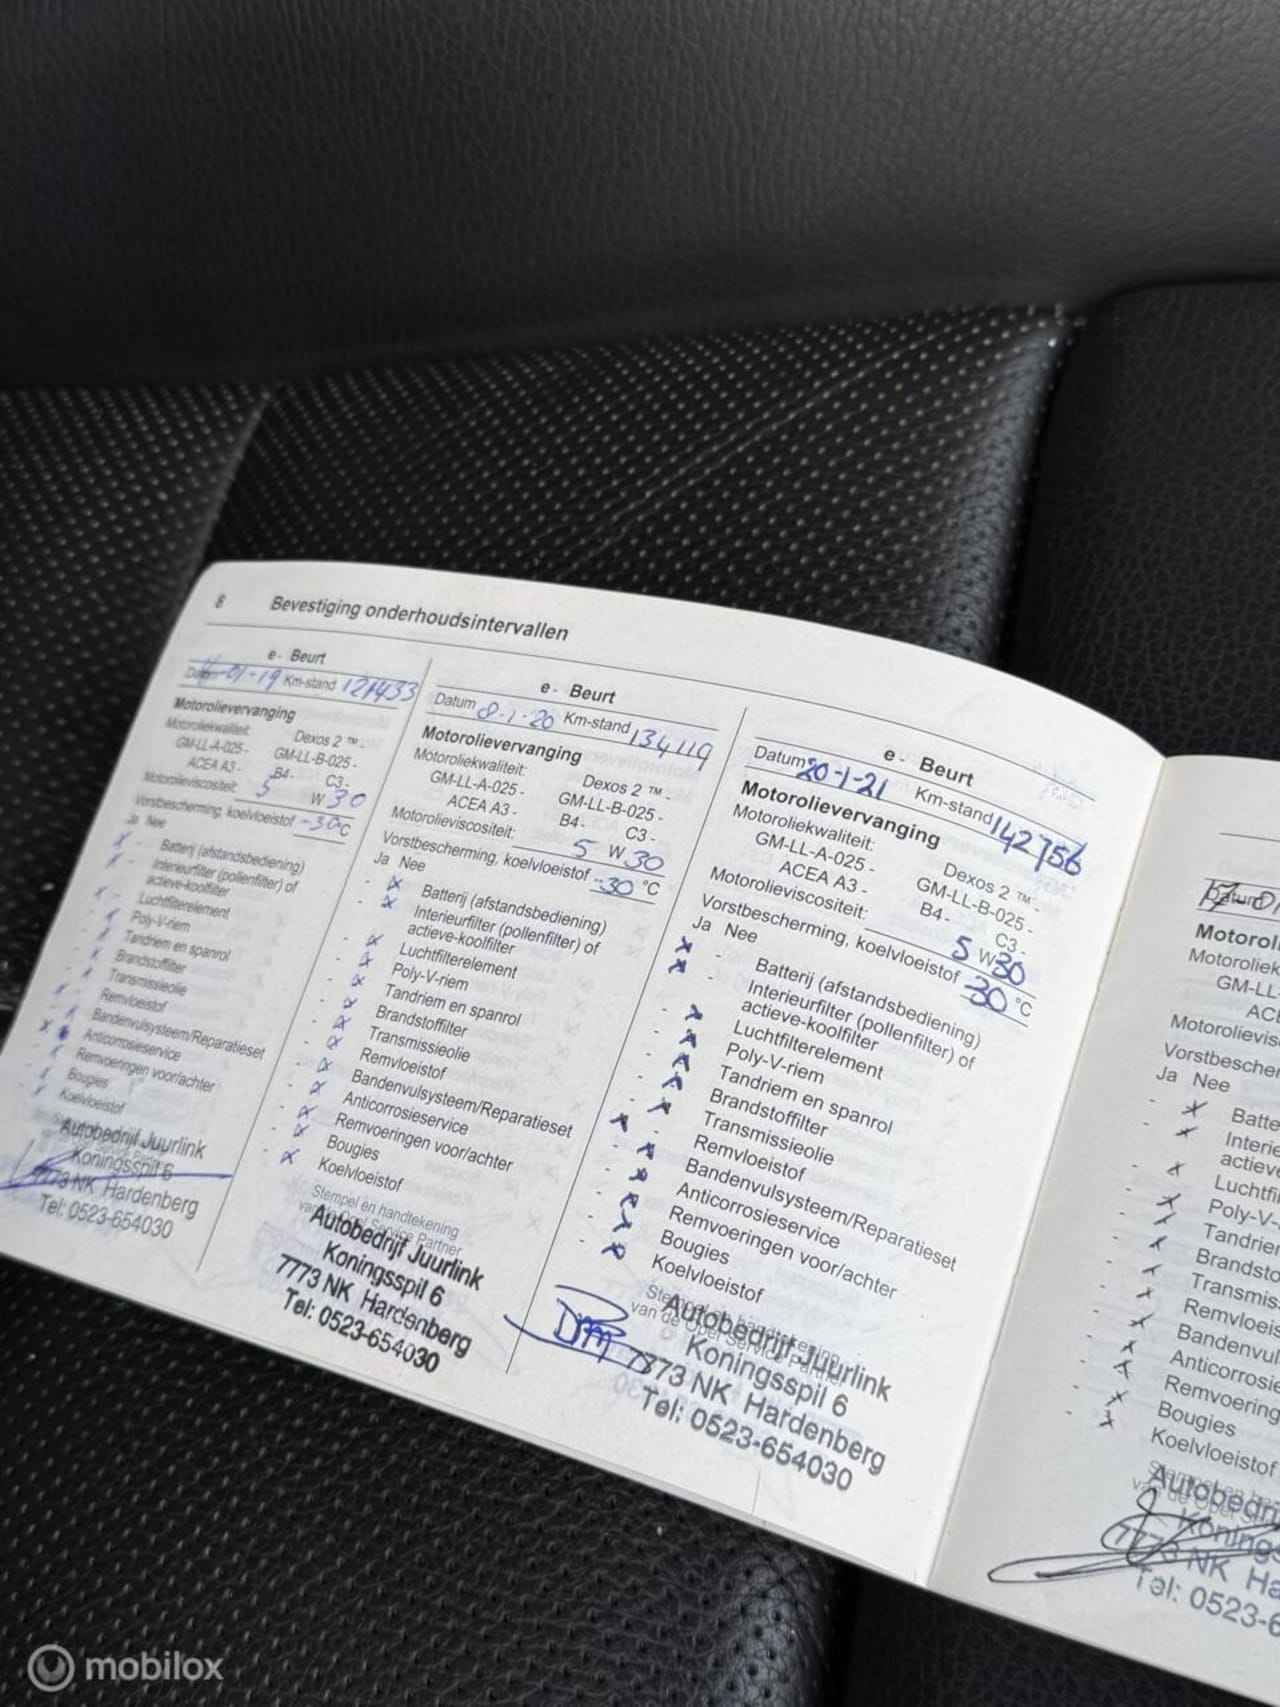 8 Bevestiging onderhoudsintervallen
e - Beurt
Datum -01-19 Km-stand 121433
Motorolievervanging
Motoroliekwaliteit:
Dexos 2 ™ -
GM-LL-A-025 - GM-LL-B-025 -
ACEA A3 - B4 - C3 -
Motorolieviscositeit: 5 W 30
Vorstbescherming, koelvloeistof -30 °C
Ja Nee
Batterij (afstandsbediening)
Interieurfilter (pollenfilter) of
actieve-koolfilter
Luchtfilterelement
Poly-V-riem
Tandriem en spanrol
Brandstoffilter
Transmissieolie
Remvloeistof
Bandenvulsysteem/Reparatieset
Anticorrosieservice
Remvoeringen voor/achter
Bougies
Koelvloeistof
Autobedrijf Juurlink
Koningsspil 6
7773 NK Hardenberg
Tel: 0523-654030
e - Beurt
Datum 8-1-20 Km-stand 134119
Motorolievervanging
Motoroliekwaliteit:
Dexos 2 ™ -
GM-LL-A-025 - GM-LL-B-025 -
ACEA A3 - B4 - C3 -
Motorolieviscositeit: 5 W 30
Vorstbescherming, koelvloeistof -30 °C
Ja Nee
Batterij (afstandsbediening)
Interieurfilter (pollenfilter) of
actieve-koolfilter
Luchtfilterelement
Poly-V-riem
Tandriem en spanrol
Brandstoffilter
Transmissieolie
Remvloeistof
Bandenvulsysteem/Reparatieset
Anticorrosieservice
Remvoeringen voor/achter
Bougies
Koelvloeistof
Stempel en handtekening
van de Opel Service Partner
Autobedrijf Juurlink
Koningsspil 6
7773 NK Hardenberg
Tel: 0523-654030
e - Beurt
Datum 20-1-21 Km-stand 142756
Motorolievervanging
Motoroliekwaliteit:
Dexos 2 ™ -
GM-LL-A-025 - GM-LL-B-025 -
ACEA A3 - B4 - C3 -
Motorolieviscositeit: 5 W 30
Vorstbescherming, koelvloeistof 30 °C
Ja Nee
Batterij (afstandsbediening)
Interieurfilter (pollenfilter) of
actieve-koolfilter
Luchtfilterelement
Poly-V-riem
Tandriem en spanrol
Brandstoffilter
Transmissieolie
Remvloeistof
Bandenvulsysteem/Reparatieset
Anticorrosieservice
Remvoeringen voor/achter
Bougies
Koelvloeistof
Stempel en handtekening
van de Opel Service Partner
Autobedrijf Juurlink
Koningsspil 6
7773 NK Hardenberg
Tel: 0523-654030
Datum
Motoroli
Motoroliek
GM-LL
ACE
Motorolievis
Vorstbescher
Ja Nee
Batte
Interie
actieve
Luchtfi
Poly-V-
Tandrie
Brandsto
Transmis
Remvloeis
Bandenvul
Anticorrosie
Remvoering
Bougies
Koelvloeistof
Autobedri
Konings
7773 NK Ha
Tel: 0523-6
mobilox